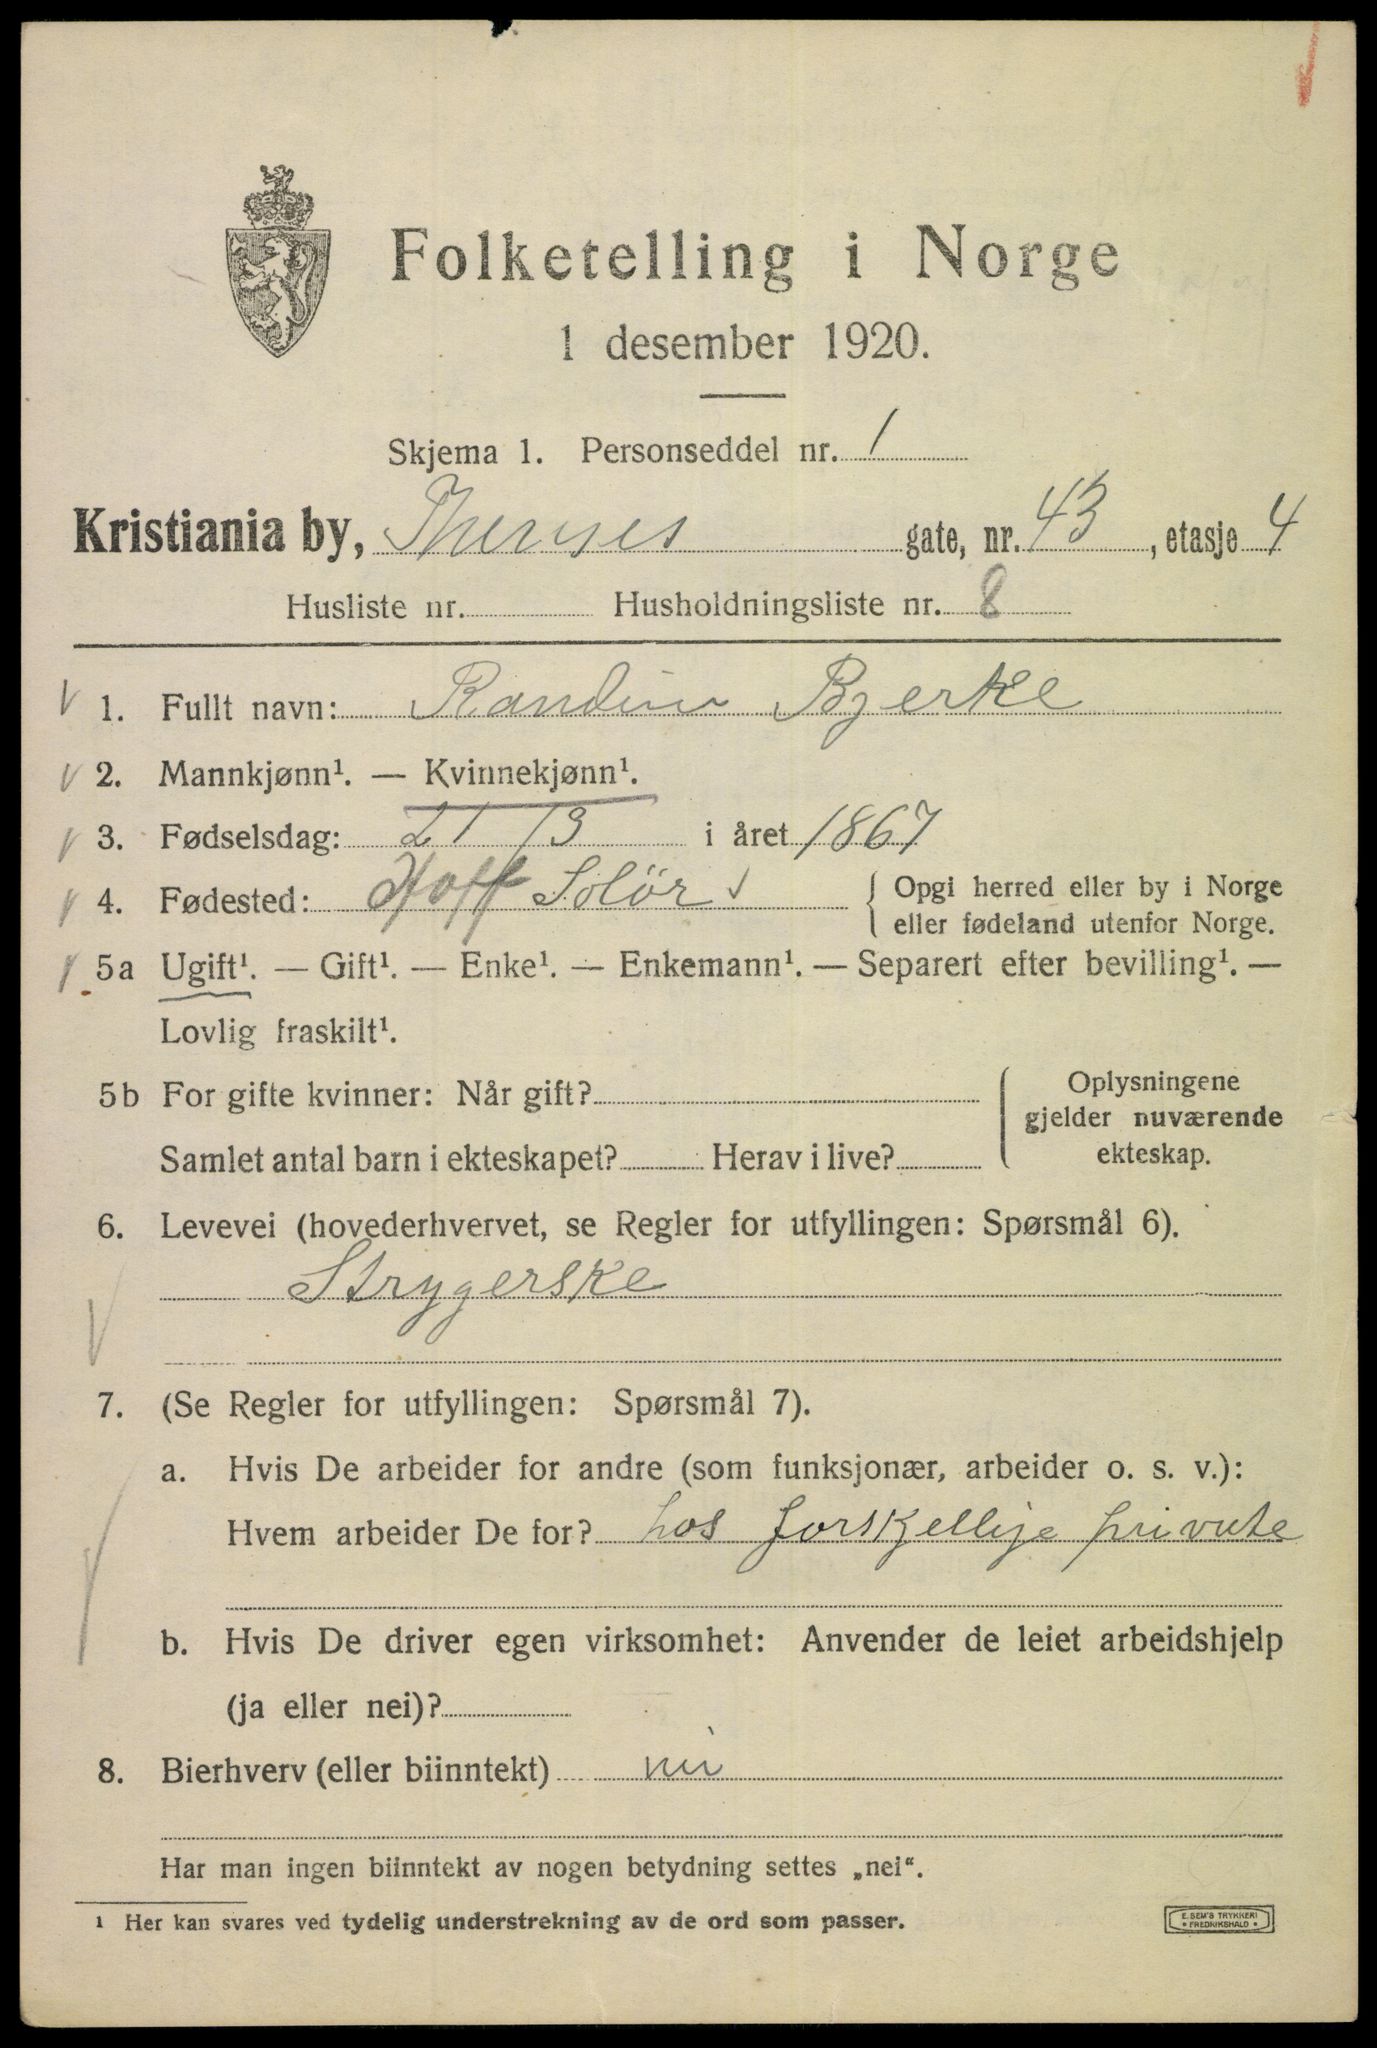 Folketelling i Norge
1 desember 1920.
Skjema 1. Personseddel nr. 1
Kristiania by, Thereses gate, nr. 43, etasje 4
Husliste nr. Husholdningsliste nr. 8
1. Fullt navn: Randine Bjerke
2. Mannkjønn¹. — Kvinnekjønn¹.
3. Fødselsdag: 21/3 i året 1867
4. Fødested: Hoff Solör { Opgi herred eller by i Norge
eller fødeland utenfor Norge.
5a Ugift¹. — Gift¹. — Enke¹. — Enkemann¹. — Separert efter bevilling¹. —
Lovlig fraskilt¹.
5b For gifte kvinner: Når gift?
Samlet antal barn i ekteskapet? Herav i live?
{ Oplysningene
gjelder nuværende
ekteskap.
6. Levevei (hovederhvervet, se Regler for utfyllingen: Spørsmål 6).
Strygerske
7. (Se Regler for utfyllingen: Spørsmål 7).
a. Hvis De arbeider for andre (som funksjonær, arbeider o. s. v.):
Hvem arbeider De for? hos forskjellige private
b. Hvis De driver egen virksomhet: Anvender de leiet arbeidshjelp
(ja eller nei)?
8. Bierhverv (eller biinntekt) nei
Har man ingen biinntekt av nogen betydning settes „nei“.
¹ Her kan svares ved tydelig understrekning av de ord som passer.
E. SEM'S TRYKKERI
• FREDRIKSHALD •